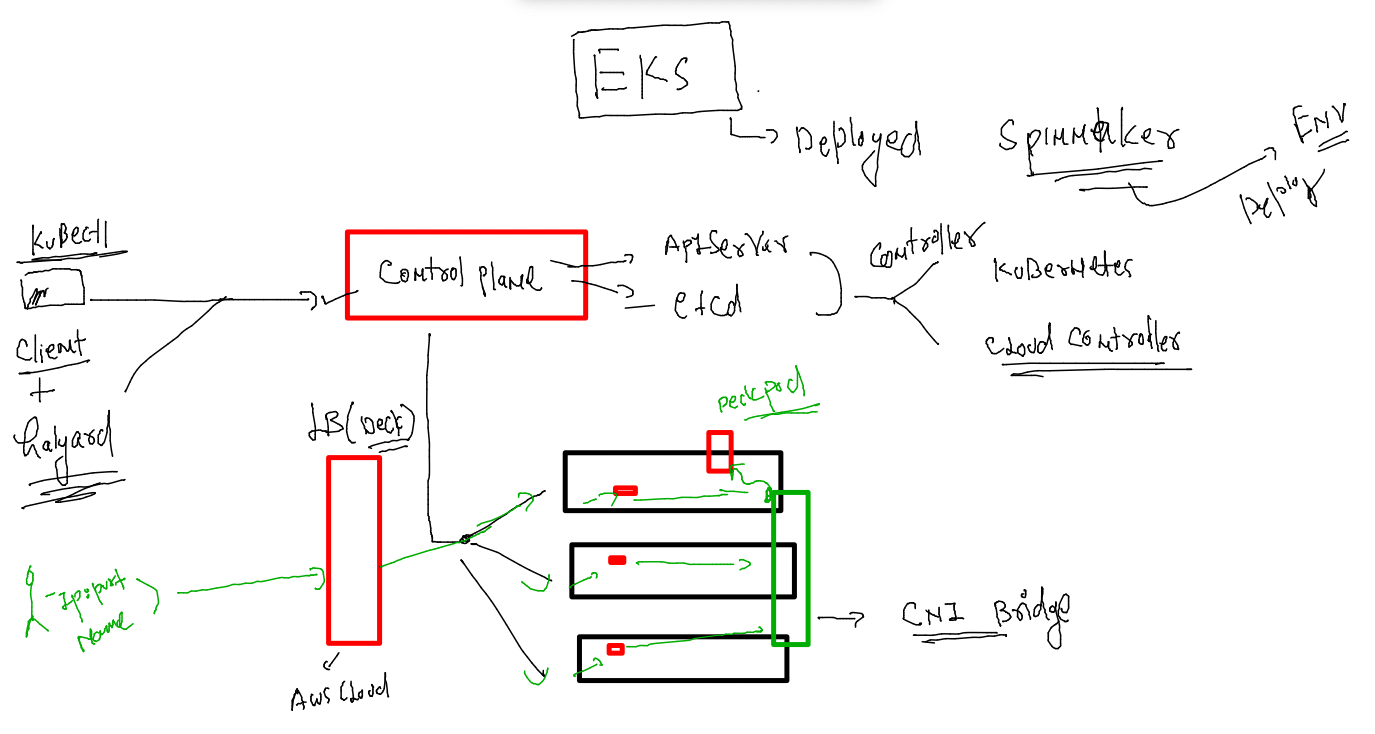 EKS
Deployed
Spinnaker
ENV
Deploy
Kubectl
Client
+
halyard
Control plane
ApiServer
etcd
Controller
Kubernetes
Cloud Controller
LB(Deck)
Deckpod
Ip:port
Name
Aws Cloud
CNI Bridge